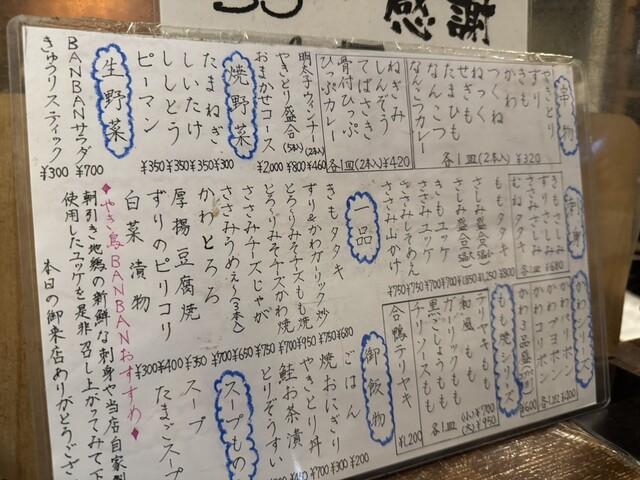 感謝
串物
やきとり
ずり
かわ
つくね
ねっく
せぎも
たまひも
なんこつ
なんこつカレー
各1皿(2本入)¥320
ねぎみ
しんぞう
てばさき
骨付ひっぷ
ひっぷカレー
各1皿(2本入)¥420
明太子ウィンナー(2本) ¥460
やきとり盛合(5本入) ¥800
おまかせコース ¥2000
焼野菜
たまねぎ ¥300
しいたけ ¥350
ししとう ¥350
ピーマン ¥350
生野菜
BANBANサラダ ¥700
きゅうりスティック ¥300
きもさしみ
ずりさしみ
ささみさしみ
むねタタキ
各1皿 ¥680
ももタタキ ¥800
さしみ盛合 ¥1,250
さしみ盛合 ¥1,850
ももユッケ ¥700
きもユッケ ¥700
ささみユッケ ¥700
ささみしそあえ ¥750
ささみ山かけ ¥750
一品
きもタタキ ¥680
ずり&かわガーリック炒 ¥750
とろりみそチーズもも焼 ¥950
とろりみそチーズかわ焼 ¥700
ささみチーズじゃが ¥750
ささみうめぇ〜(3本入) ¥650
かわとろろ ¥700
厚揚豆腐焼 ¥350
ずりのピリコリ ¥400
白菜漬物 ¥300
♦やき鳥BANBANおすすめ♦
朝引き地鶏の新鮮な刺身や当店自家製
使用したユッケを是非召し上がってみて下
本日の御来店ありがとうござ
かわシリーズ
かわパリポン
かわプヨポン
かわコリポン
各1皿 ¥400
かわ3品盛 ¥600
もも焼シリーズ
テリヤキもも
和風もも
ガーリックもも
黒こしょうもも
チリソースもも
各1皿 (小)¥700 (大)¥950
合鴨テリヤキ ¥1,200
御飯物
ごはん ¥200
焼おにぎり ¥300
やきとり丼 ¥700
鮭お茶漬
とりぞうすい
スープもの
スープ
たまごスープ